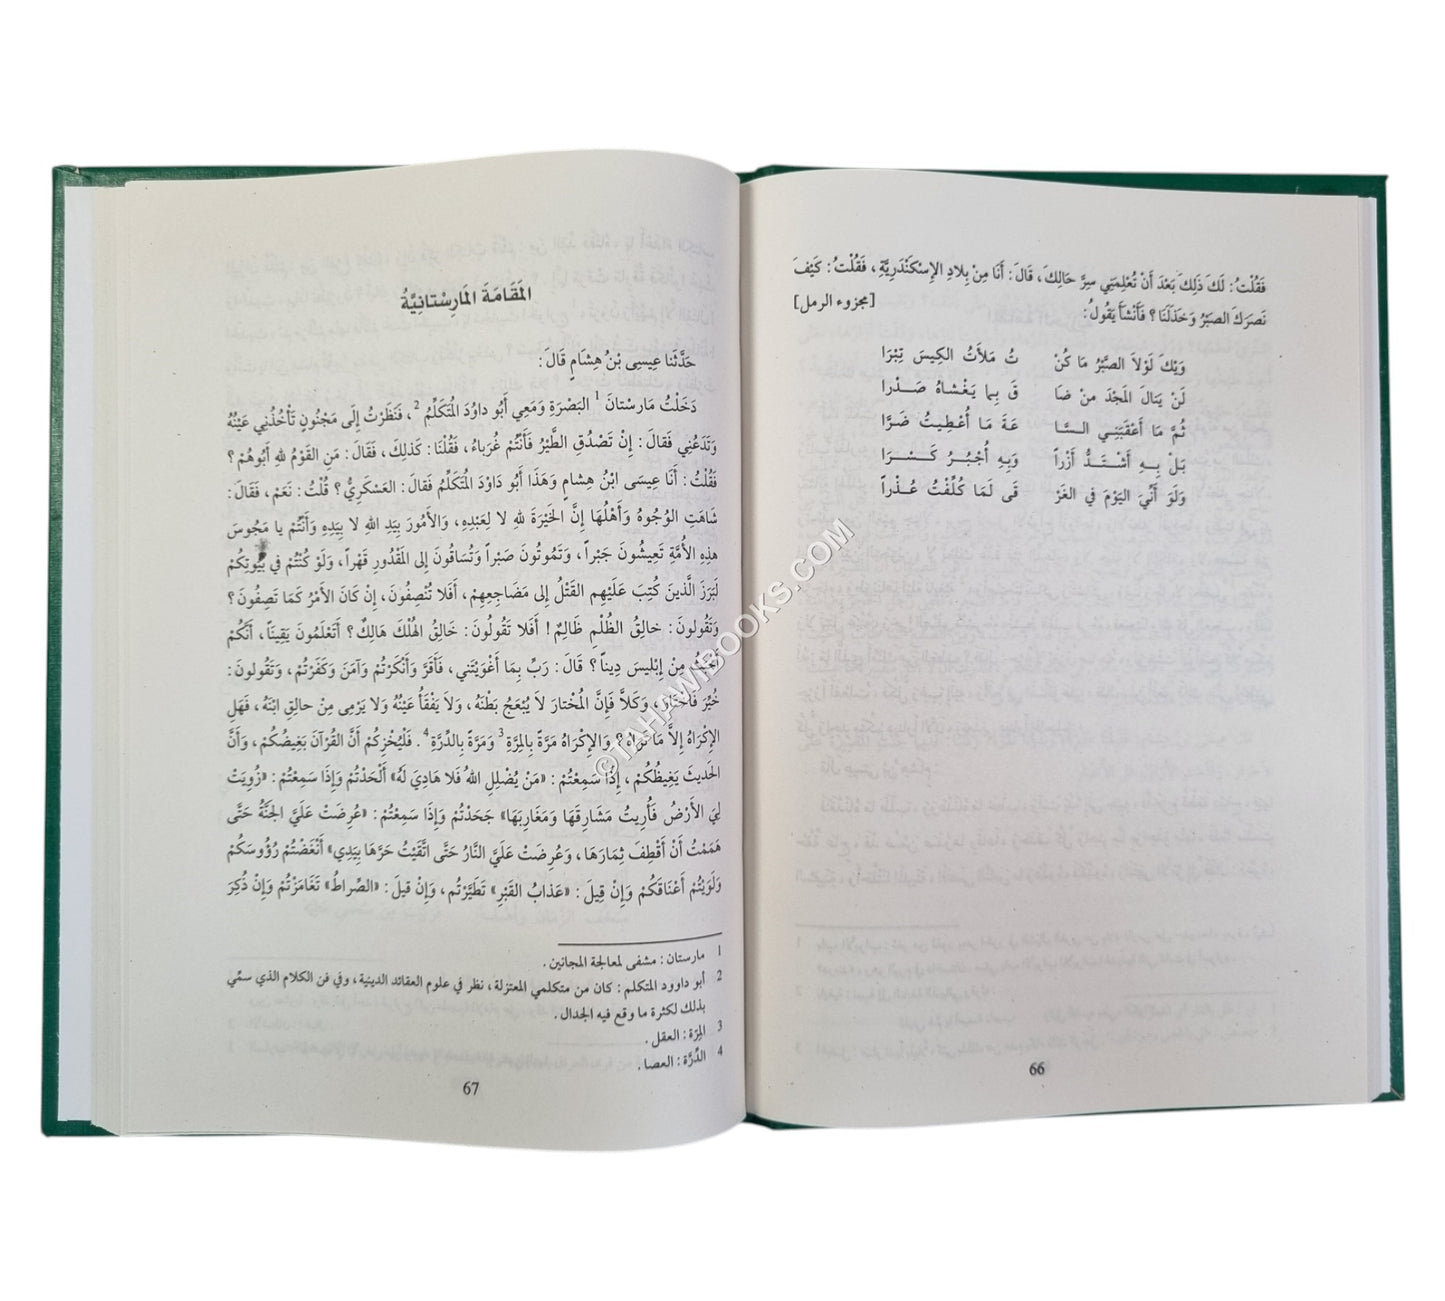 فَقُلْتُ: لَكَ ذَلِكَ بَعْدَ أَنْ تُعْلِمَنِي سِرَّ حَالِكَ، قَالَ: أَنَا مِنْ بِلَادِ الإِسْكَنْدَرِيَّةِ، فَقُلْتُ: كَيْفَ
نَصَرَكَ الصَّبْرُ وَخَذَلَنَا؟ فَأَنْشَأَ يَقُولُ: [مجزوء الرمل]
وَيْكَ لَوْلاَ الصَّبْرُ مَا كُنْ تُ مَلأْتُ الكِيسَ تِبْرَا
لَنْ يَنَالَ المَجْدَ مَنْ ضَا قَ بِمَا يَغْشَاهُ صَدْرا
ثُمَّ مَا أَعْقَبَنِي السَّا عَةَ مَا أُعْطِيتُ ضَرَّا
بَلْ بِهِ أَشْتَدُّ أَزْراً وَبِهِ أَجْبُرُ كَسْرَا
وَلَوَ أَنِّيَ اليَوْمَ في الغَرْ قَى لَمَا كُلِّفْتُ عُذْراً
66
المَقَامَةَ المَارِسْتانِيَّةُ
حَدَّثَنا عِيسى بْنُ هِشَامٍ قَالَ:
دَخَلْتُ مَارِسْتانَ 1 البَصْرَةِ وَمَعِي أَبُو داوُدَ المُتَكَلِّمُ 2، فَنَظَرْتُ إِلَى مَجْنُونٍ تَأْخُذُنِي عَيْنُهُ
وَتَدَعُنِي فَقالَ: إِنْ تَصْدُقِ الطَّيْرُ فَأَنْتُمْ غُرَباءُ، فَقُلْنَا: كَذلِكَ، فَقَالَ: مَنِ القَوْمُ للهِ أَبُوهُمْ؟
فَقُلْتُ: أَنَا عِيسَى ابْنُ هِشامٍ وَهَذَا أَبُو دَاوُدَ المُتَكَلِّمُ فَقالَ: العَسْكَرِيُّ؟ قُلْتُ: نَعَمْ، فَقَالَ:
شَاهَتِ الوُجُوهُ وَأَهْلُهَا إِنَّ الخَيْرَةَ للهِ لا لِعَبْدِهِ، وَالأُمُورَ بِيَدِ اللهِ لا بِيَدِهِ وَأَنْتُمْ يا مَجُوسَ
هذِهِ الأُمَّةِ تَعِيشُونَ جَبْراً، وَتَمُوتُونَ صَبْراً وَتُسَاقُونَ إِلى المَقْدُورِ قَهْراً، وَلَوْ كُنْتُمْ في بُيُوتِكُمْ
لَبَرَزَ الَّذينَ كُتِبَ عَلَيْهِم القَتْلُ إِلى مَضَاجِعِهِمْ، أَفَلا تُنْصِفُونَ، إِنْ كَانَ الأَمْرُ كَمَا تَصِفُونَ؟
وَتَقُولونَ: خالِقُ الظُّلْمِ ظَالِمٌ! أَفَلا تَقُولُونَ: خَالِقُ الهُلْكَ هَالِكٌ؟ أَتَعْلَمُونَ يَقِيناً، أَنَّكُمْ
أَخْبَثُ مِنْ إِبْلِيسَ دِيناً؟ قَالَ: رَبِّ بِمَا أَغْوَيْتَني، فَأَقَرَّ وَأَنْكَرْتُمْ وَآمَنَ وَكَفَرْتُمْ، وَتَقُولونَ:
خُيِّرَ فَاخْتَارَ، وَكَلاَّ فَإِنَّ المُخْتارَ لاَ يُبْعَجُ بَطْنُهُ، وَلاَ يَفْقَأُ عَيْنُهُ وَلا يَرْمِى مِنْ حالِقٍ ابْنَهُ، فَهَلِ
الإِكْرَاهُ إِلاَّ مَا تَرَاهُ؟ وَالإِكْرَاهُ مَرَّةً بِالمِرَّةِ 3 وَمَرَّةً بِالدِّرَّةِ 4. فَلْيُخْزِكُمْ أَنَّ القُرْآنَ بَغِيضُكُمْ، وَأَنَّ
الحَديثَ يَغِيظُكُمْ، إِذَا سَمِعْتُمْ: «مَنْ يُضْلِلِ اللهُ فَلا هَادِيَ لَهُ» أَلْحَدْتُمْ وَإِذَا سَمِعْتُمْ: «زُوِيَتْ
لِيَ الأَرْضُ فَأُرِيتُ مَشَارِقَهَا وَمَغَارِبَهَا» جَحَدْتُمْ وَإِذَا سَمِعْتُمْ: «عُرِضَتْ عَلَيَّ الجَنَّةُ حَتَّى
هَمَمْتُ أَنْ أَقْطِفَ ثِمَارَهَا، وَعُرِضَتْ عَلَيَّ النَّارُ حَتَّى اتَّقَيْتُ حَرَّهَا بِيَدِي» أَنْغَضْتُمْ رُؤُوسَكُمْ
وَلَوَيْتُمْ أَعْنَاقَكُمْ وَإِنْ قِيلَ: «عَذَابُ القَبْرِ» تَطَيَّرْتُم، وَإِنْ قِيلَ: «الصِّراطُ» تَغَامَزْتُمْ وَإِنْ ذُكِرَ
1 مارستان: مشفى لمعالجة المجانين.
2 أبو داوود المتكلم: كان من متكلمي المعتزلة، نظر في علوم العقائد الدينية، وفي فن الكلام الذي سمّي
بذلك لكثرة ما وقع فيه الجدال.
3 المِرَّة: العقل.
4 الدِّرَّة: العصا.
67
©TAHAWIBOOKS.COM